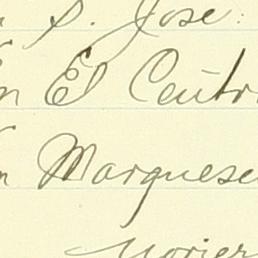 S. Jose.
El Centr
Marquese